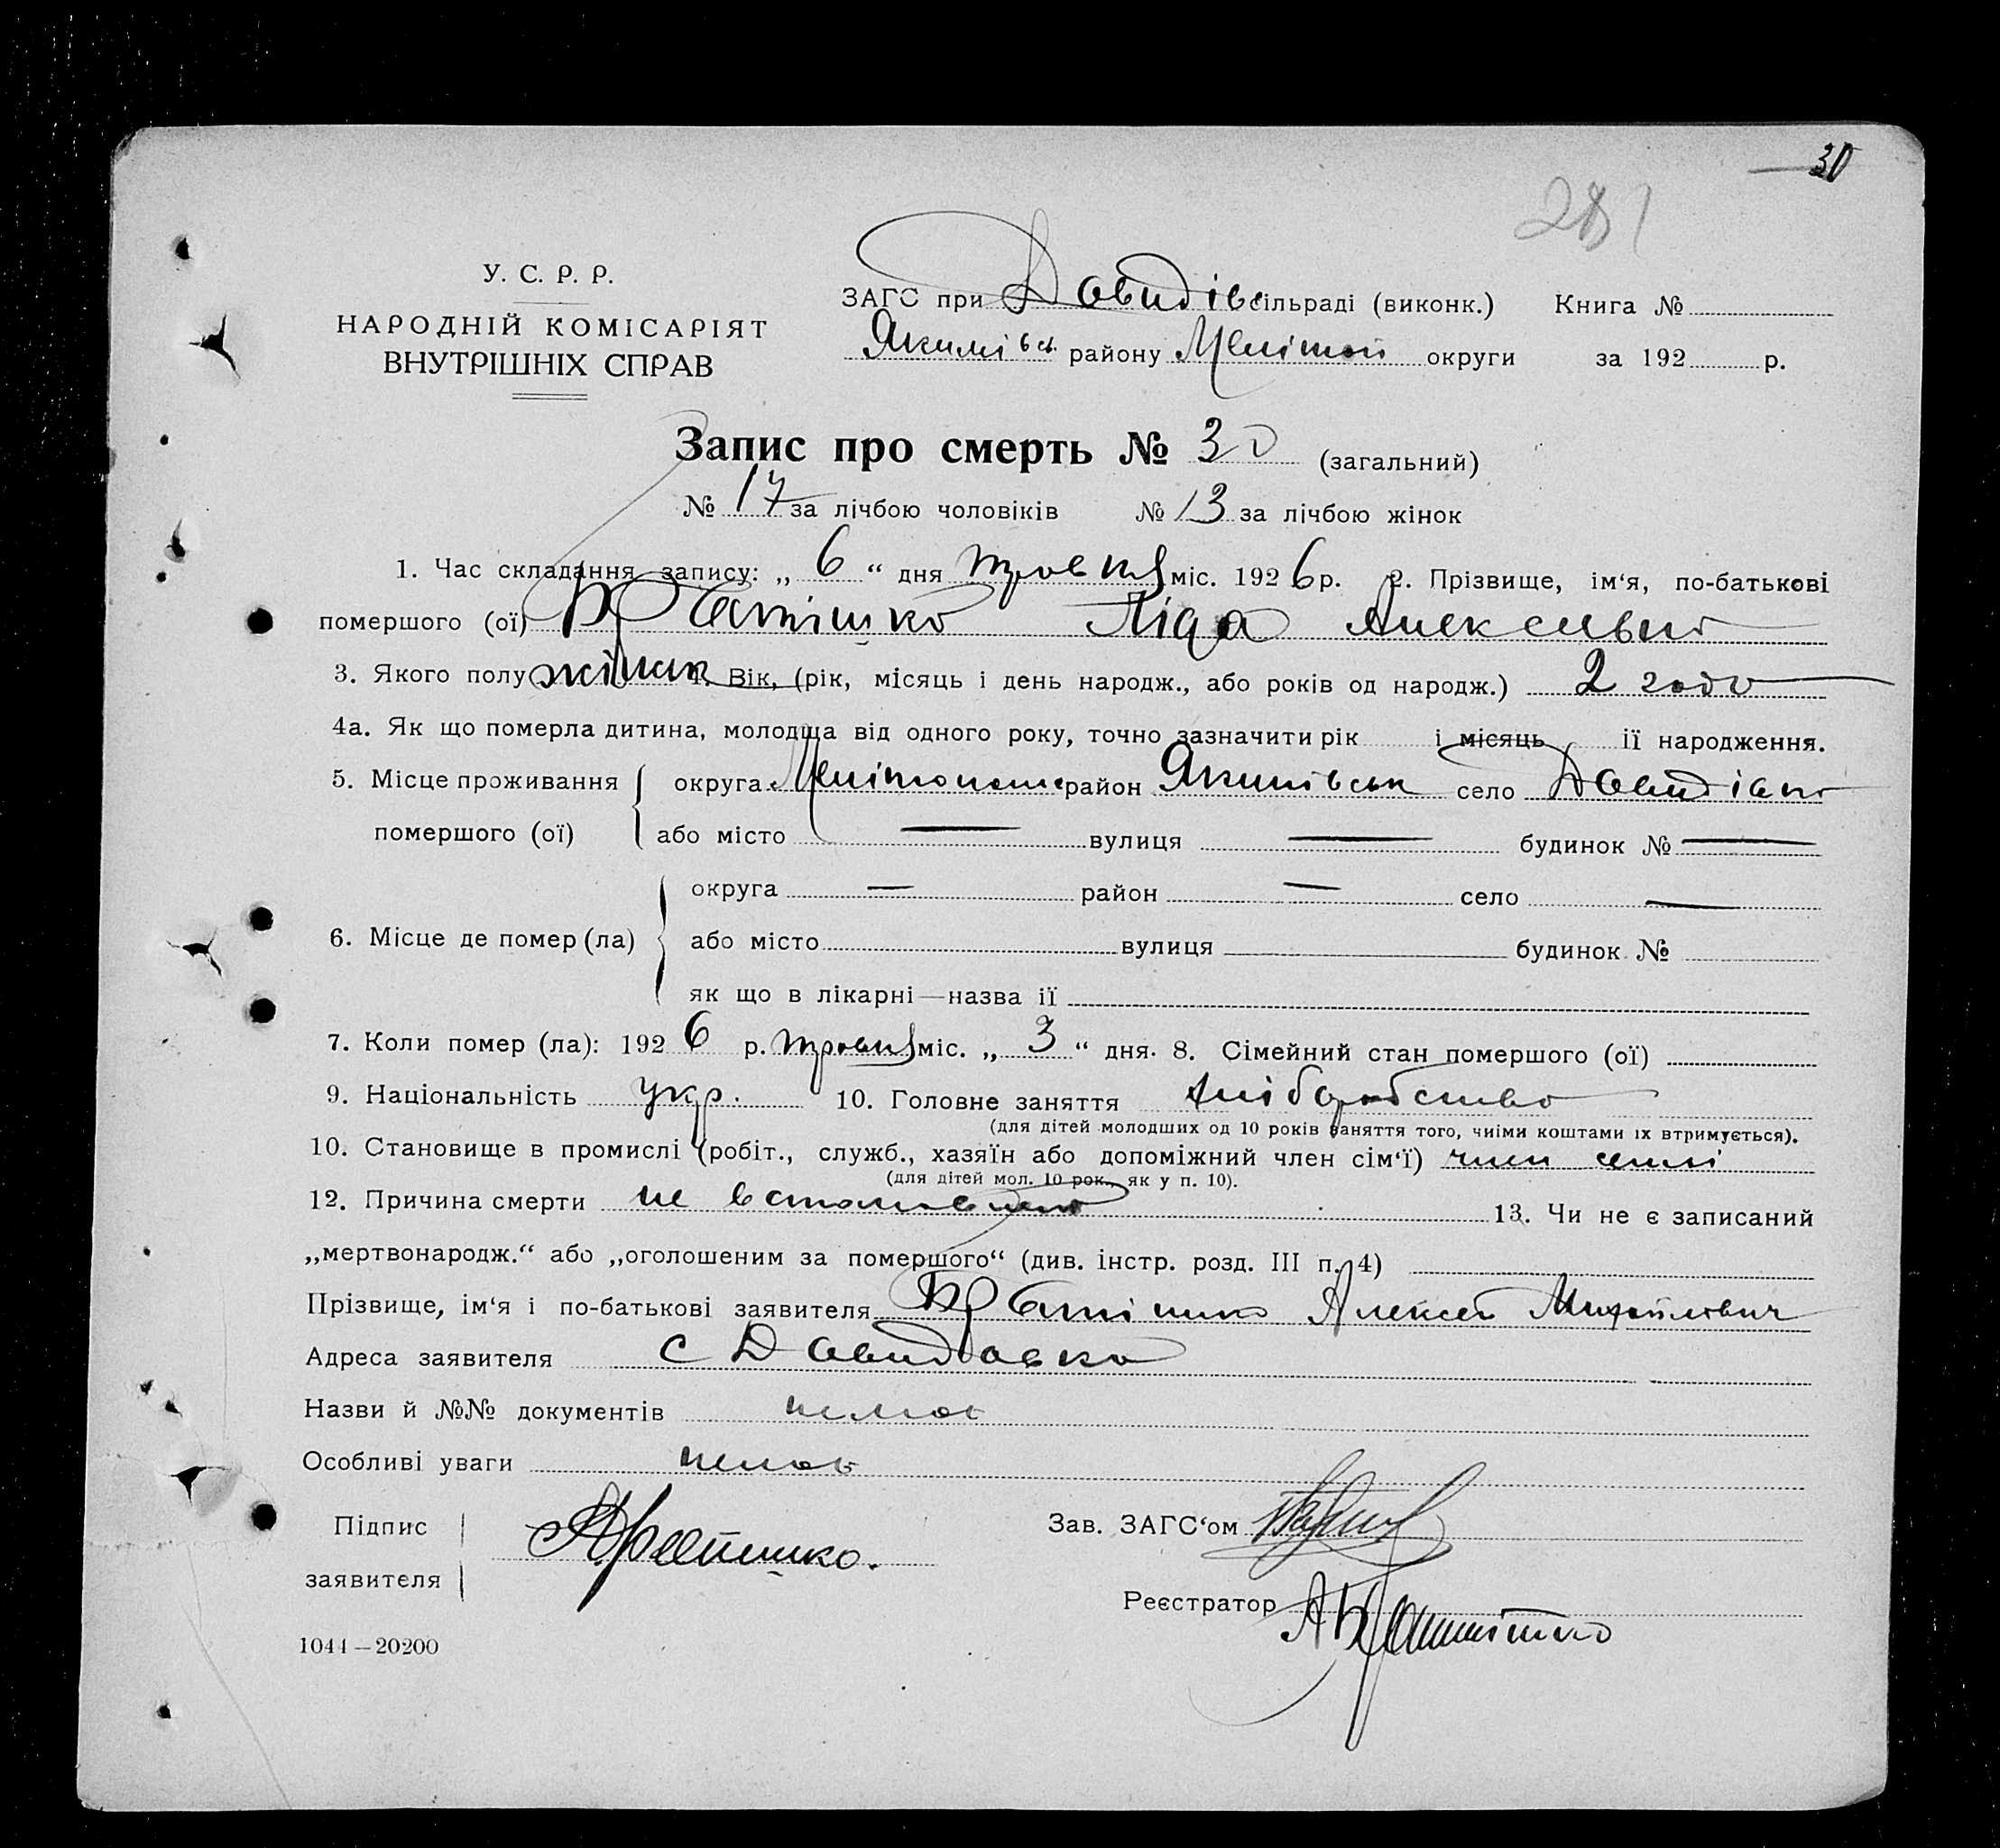 30
281
У. С. Р. Р.
НАРОДНІЙ КОМІСАРІЯТ
ВНУТРІШНІХ СПРАВ
ЗАГС при Давидівс сільраді (виконк.) Книга №
Якимівсь району Мелітоп округи за 192 р.
Запис про смерть № 30 (загальний)
№ 17 за лічбою чоловіків № 13 за лічбою жінок
1. Час складання запису: „ 6 “ дня травня міс. 1926 р. 2. Прізвище, ім‘я, по-батькові
помершого (ої) Братішко Ліда Алексевна
3. Якого полу жіноч 4. Вік, (рік, місяць і день народж., або років од народж.) 2 года
4а. Як що померла дитина, молодща від одного року, точно зазначити рік і місяць її народження.
5. Місце проживання округа Мелітопольс район Якимівськ село Давидівка
помершого (ої) або місто — вулиця — будинок № —
округа — район — село —
6. Місце де помер (ла) або місто вулиця будинок №
як що в лікарні—назва її
7. Коли помер (ла): 1926 р. травня міс. „ 3 “ дня. 8. Сімейний стан помершого (ої)
9. Національність укр. 10. Головне заняття хліборобство
(для дітей молодших од 10 років заняття того, чиїми коштами їх втримується).
10. Становище в промислі (робіт., служб., хазяїн або допоміжний член сім‘ї) член семї
(для дітей мол. 10 рок., як у п. 10).
12. Причина смерти не встановлено 13. Чи не є записаний
„мертвонародж.“ або „оголошеним за помершого“ (див. інстр. розд. III п. 4)
Прізвище, ім‘я і по-батькові заявителя Братішко Алексей Михайлович
Адреса заявителя с Давидовка
Назви й №№ документів немає
Особливі уваги немає
Підпис
заявителя
А Братишко.
Зав. ЗАГС‘ом
Реєстратор А Братішко
1044—20200